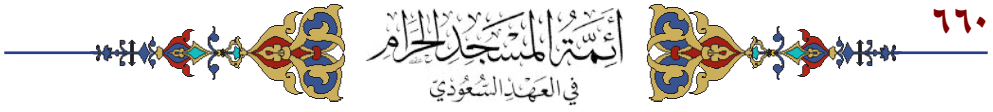 ٦٦٠
أَئِمَّةُ المَسْجِدِ الحَرَامِ
في العَهْدِ السُّعُودِيّ